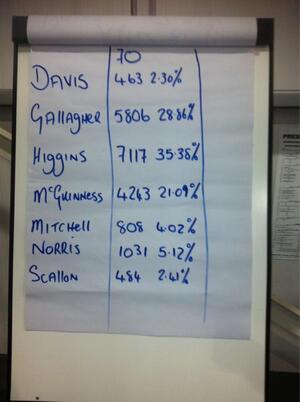 70
DAVIS 463 2.30%
GALLAGHER 5806 28.86%
HIGGINS 7117 35.38%
McGUINNESS 4243 21.09%
MITCHELL 808 4.02%
NORRIS 1031 5.12%
SCALLON 484 2.41%